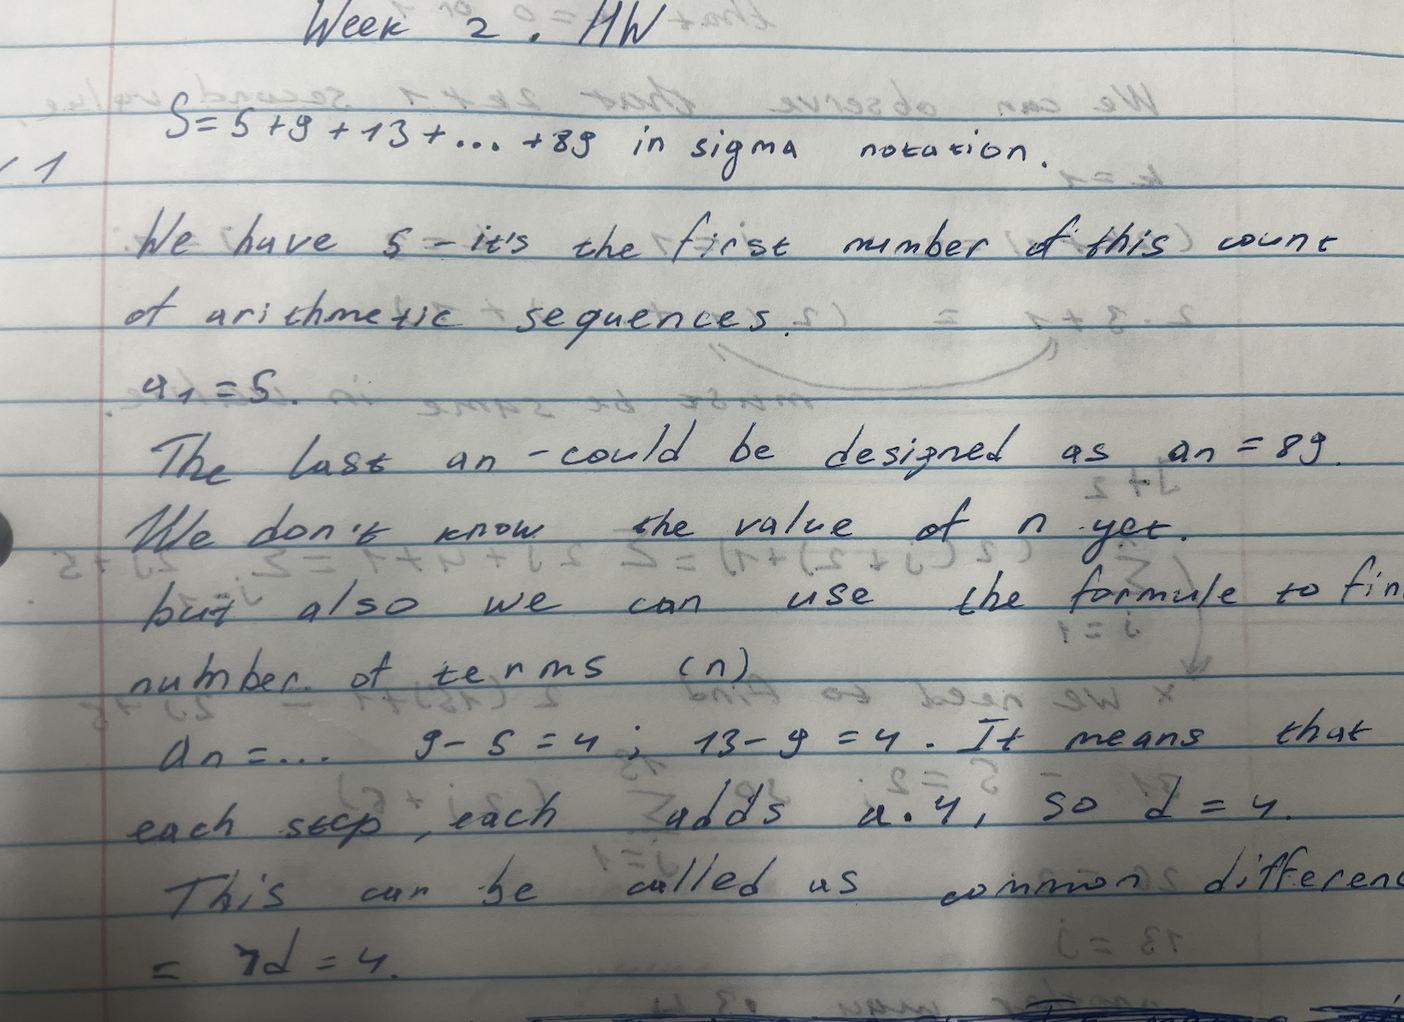 Week 2. HW
S = 5 + 9 + 13 + ... + 89 in sigma notation.
1
We have 5 - it's the first number of this count
of arithmetic sequences.
a1 = 5.
The last an - could be designed as an = 89.
We don't know the value of n yet.
but also we can use the formule to fin
number of terms (n)
an = ... 9 - 5 = 4 ; 13 - 9 = 4. It means that
each step, each adds a. 4, so d = 4.
This can be called as common differenc
= d = 4.